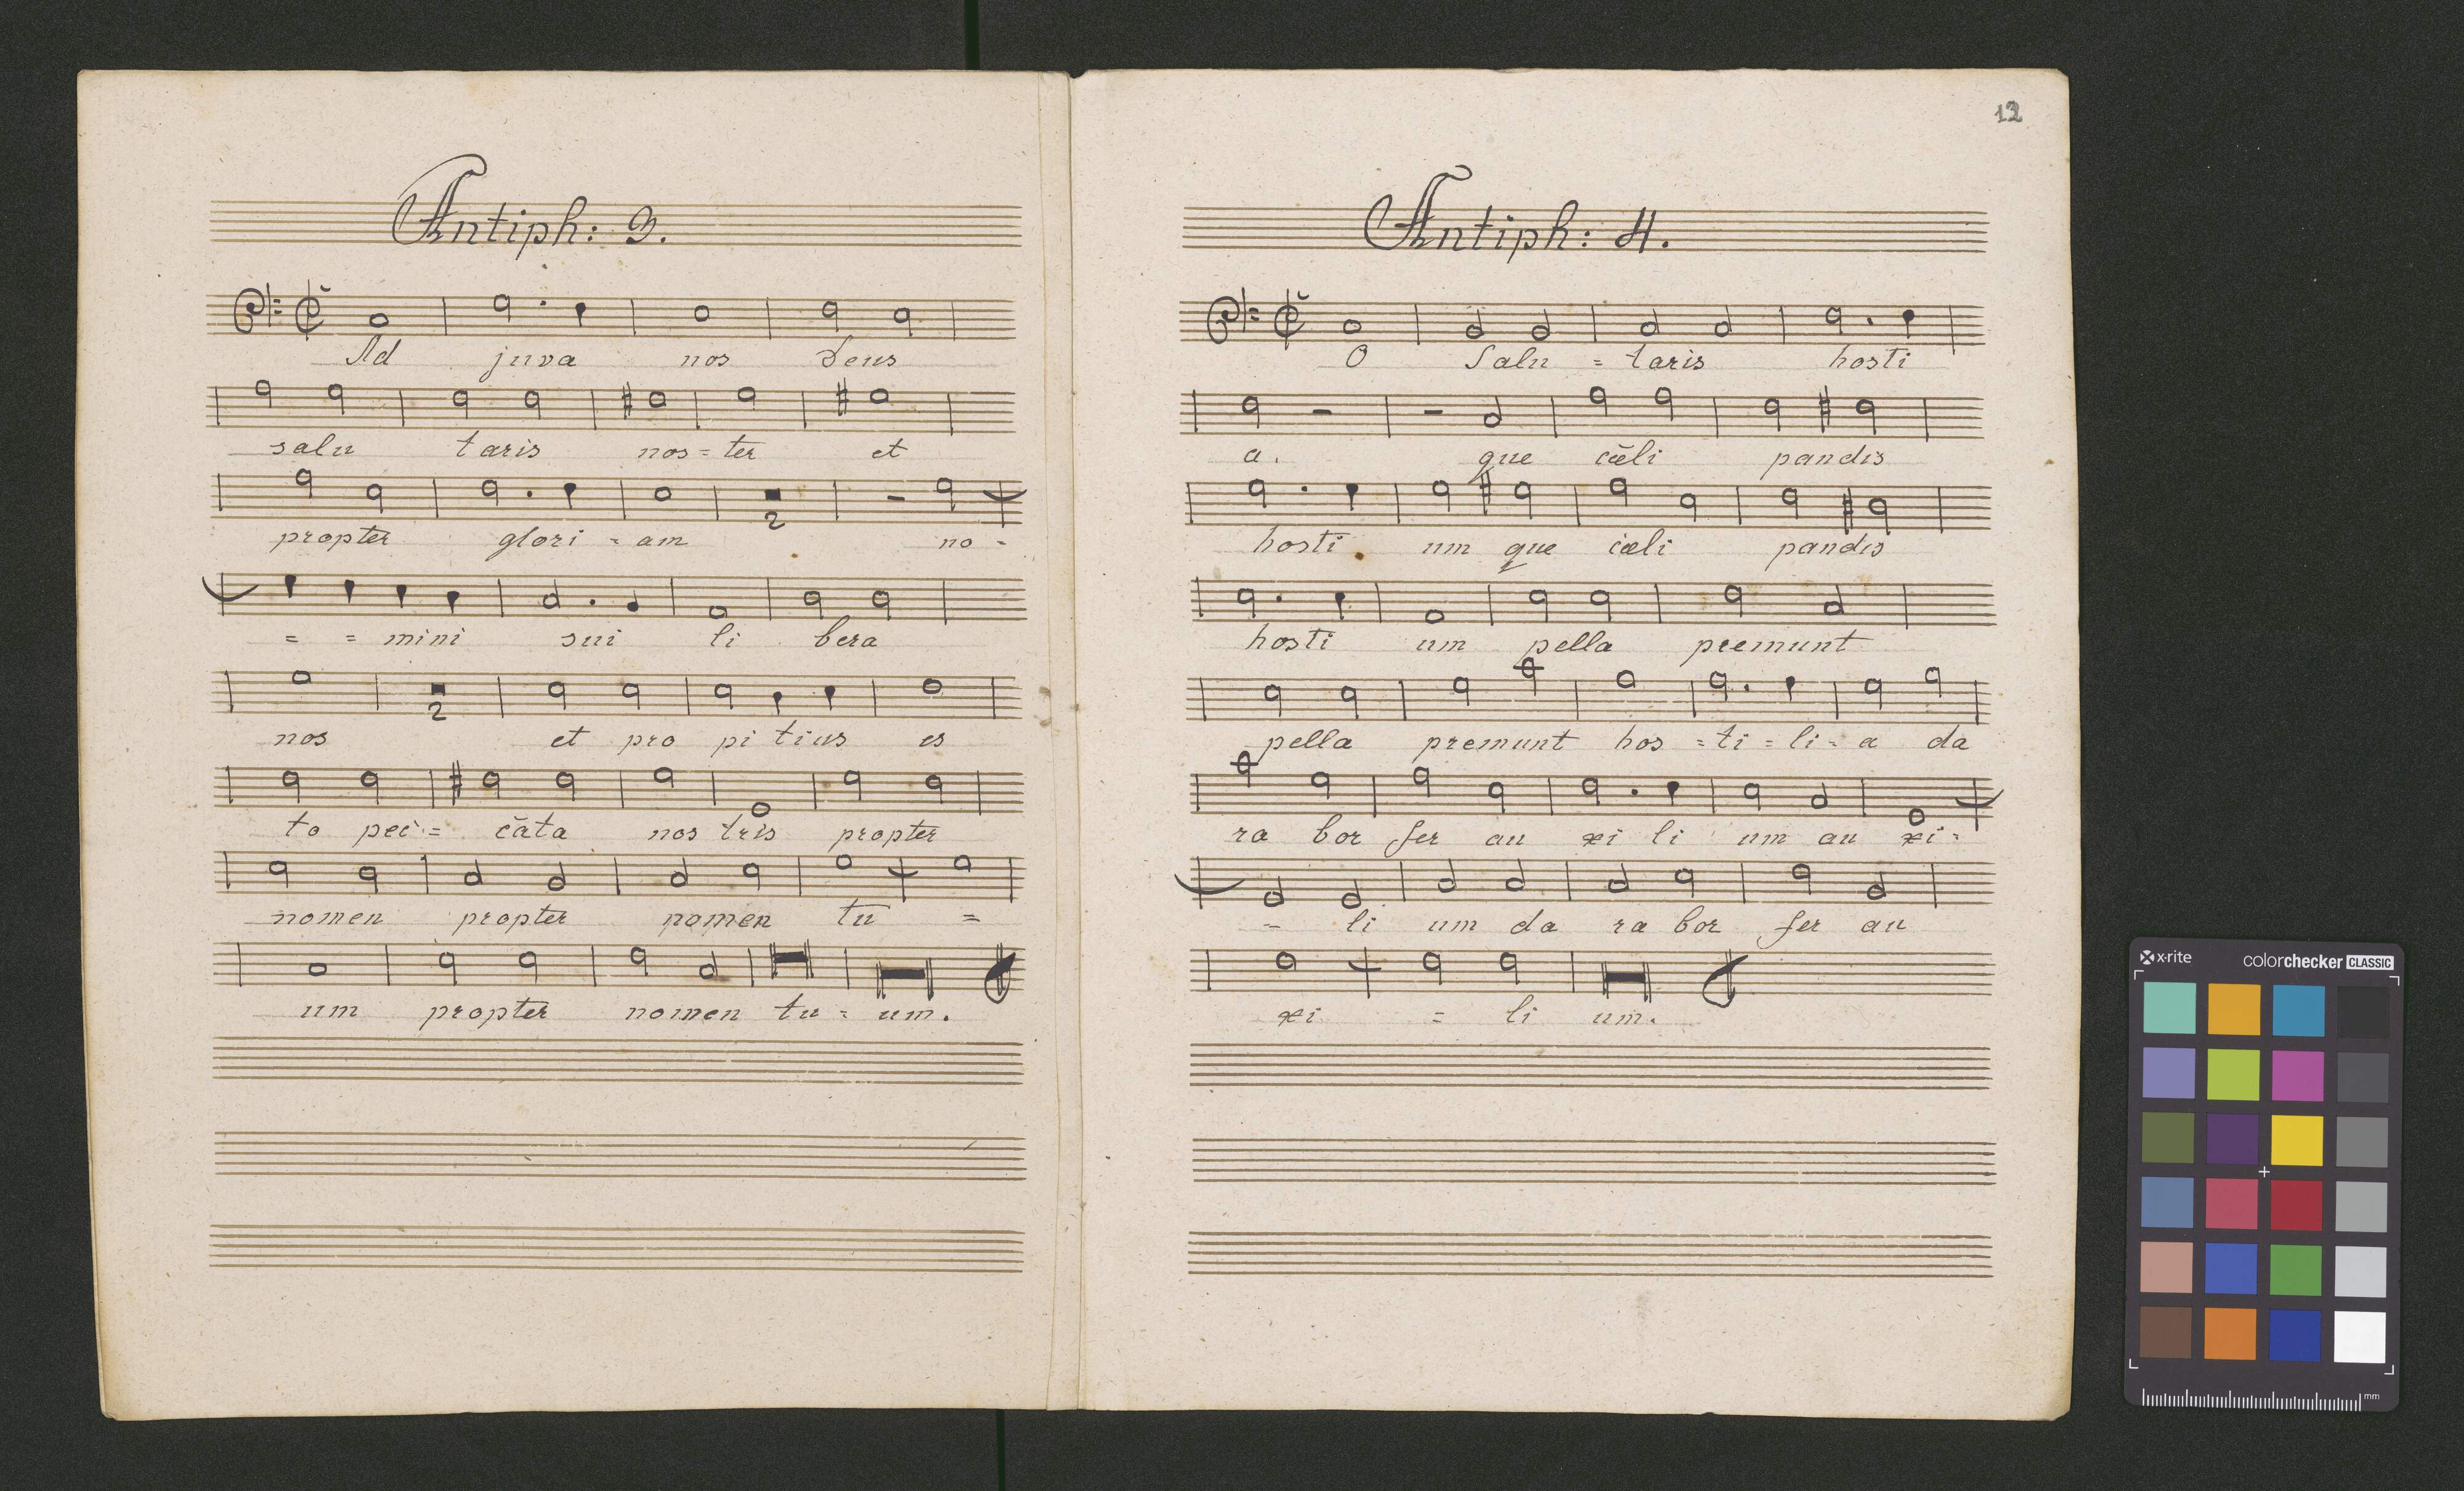 Antiph: 3.
Ad juva nos Deus
salu taris nos = ter et
propter glori = am no -
2
= = mini sui li bera
nos et pro pi tius es
2
to pec = cata nos tris propter
nomen propter nomen tu =
um propter nomen tu = um.
12
Antiph: 4.
O Salu = taris hosti
a. que cæli pandis
hosti um que cæli pandis
hosti um pella premunt
pella premunt hos = ti = li = a da
ra bor fer au xi li um au xi =
- li um da ra bor fer au
xi = li um.
x-rite colorchecker CLASSIC
mm